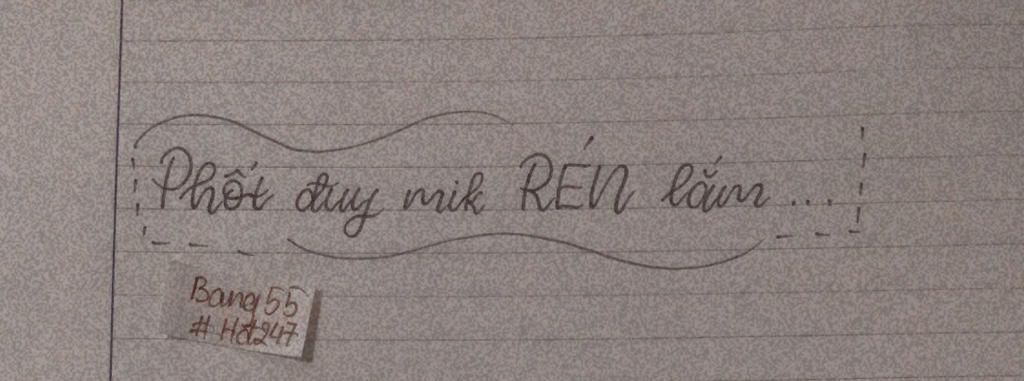 Phốt đuy mik RÉN lắm...
Bang55
#Hot247